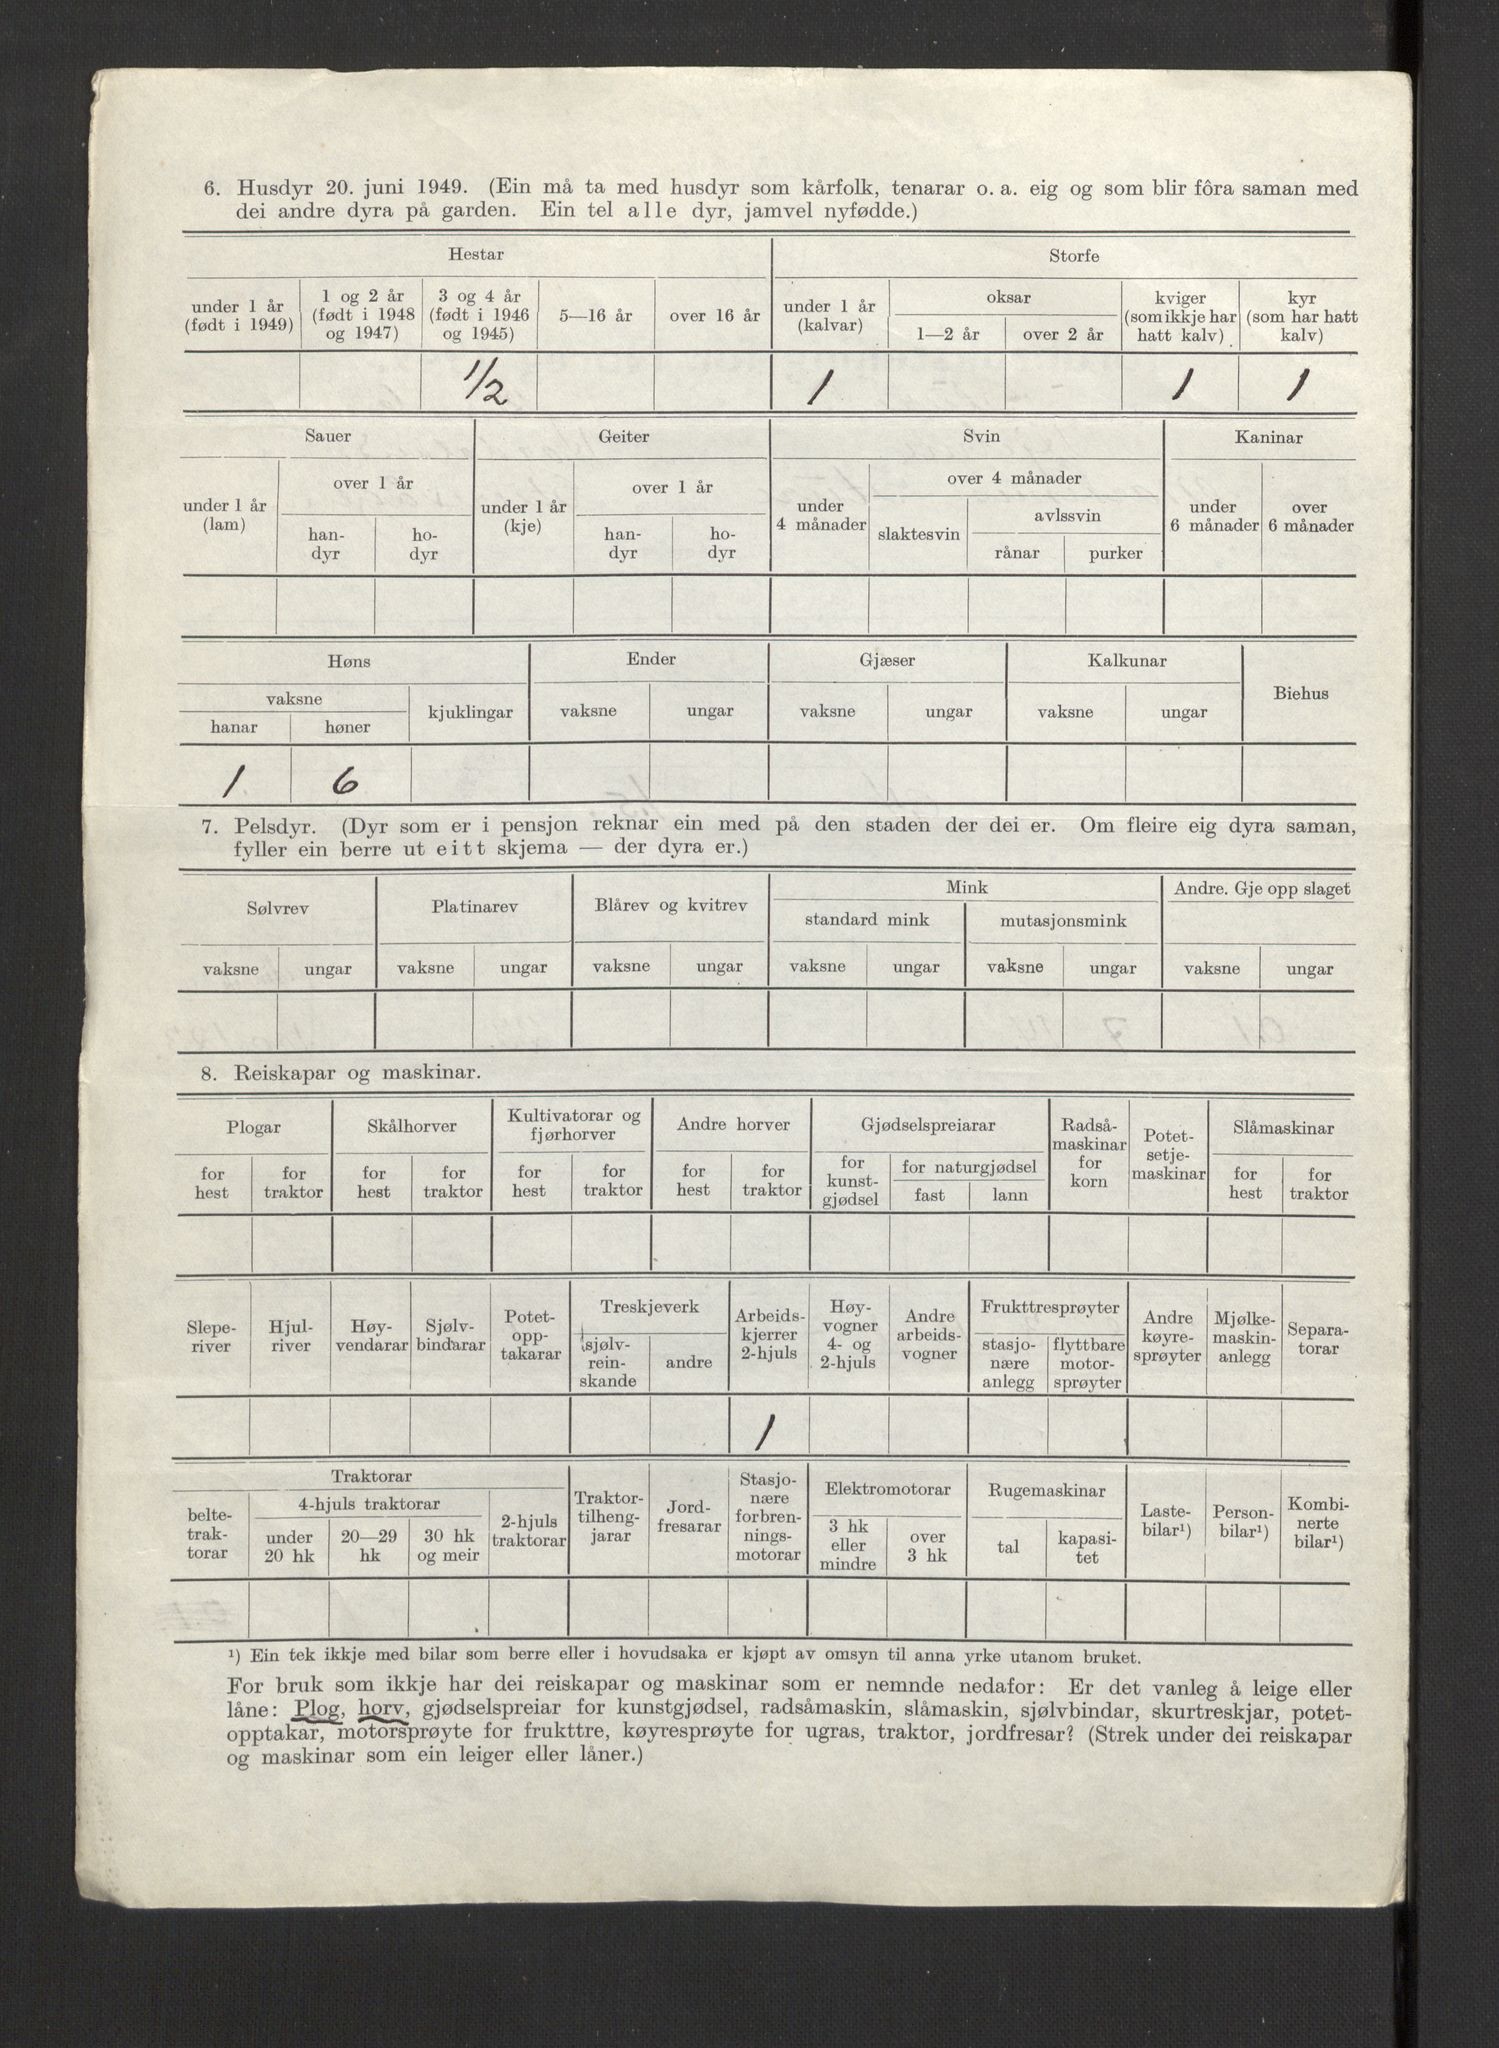 6. Husdyr 20. juni 1949. (Ein må ta med husdyr som kårfolk, tenarar o. a. eig og som blir fôra saman med
dei andre dyra på garden. Ein tel alle dyr, jamvel nyfødde.)
Hestar Storfe
under 1 år (født i 1949) 1 og 2 år (født i 1948 og 1947) 3 og 4 år (født i 1946 og 1945) 5—16 år over 16 år under 1 år (kalvar) oksar 1—2 år over 2 år kviger (som ikkje har hatt kalv) kyr (som har hatt kalv)
1/2 1 1 1
Sauer Geiter Svin Kaninar
under 1 år (lam) over 1 år han-dyr ho-dyr under 1 år (kje) over 1 år han-dyr ho-dyr under 4 månader over 4 månader slaktesvin avlssvin rånar purker under 6 månader over 6 månader
Høns Ender Gjæser Kalkunar Biehus
vaksne hanar høner kjuklingar vaksne ungar vaksne ungar vaksne ungar
1 6
7. Pelsdyr. (Dyr som er i pensjon reknar ein med på den staden der dei er. Om fleire eig dyra saman,
fyller ein berre ut eitt skjema — der dyra er.)
Sølvrev Platinarev Blårev og kvitrev Mink Andre. Gje opp slaget
standard mink mutasjonsmink
vaksne ungar vaksne ungar vaksne ungar vaksne ungar vaksne ungar vaksne ungar
8. Reiskapar og maskinar.
Plogar Skålhorver Kultivatorar og fjørhorver Andre horver Gjødselspreiarar Radså-maskinar for korn Potet-setje-maskinar Slåmaskinar
for hest for traktor for hest for traktor for hest for traktor for hest for traktor for kunst-gjødsel for naturgjødsel fast lann for hest for traktor
Slepe-river Hjul-river Høy-vendarar Sjølv-bindarar Potet-opp-takarar Treskjeverk sjølv-rein-skande andre Arbeids-kjerrer 2-hjuls Høy-vogner 4- og 2-hjuls Andre arbeids-vogner Frukttresprøyter stasjo-nære anlegg flyttbare motor-sprøyter Andre køyre-sprøyter Mjølke-maskin-anlegg Separa-torar
1
Traktorar
belte-trak-torar 4-hjuls traktorar under 20 hk 20—29 hk 30 hk og meir 2-hjuls traktorar Traktor-tilheng-jarar Jord-fresarar Stasjo-nære forbren-nings-motorar Elektromotorar 3 hk eller mindre over 3 hk Rugemaskinar tal kapasi-tet Laste-bilar¹) Person-bilar¹) Kombi-nerte bilar¹)
¹) Ein tek ikkje med bilar som berre eller i hovudsaka er kjøpt av omsyn til anna yrke utanom bruket.
For bruk som ikkje har dei reiskapar og maskinar som er nemnde nedafor: Er det vanleg å leige eller
låne: Plog, horv, gjødselspreiar for kunstgjødsel, radsåmaskin, slåmaskin, sjølvbindar, skurtreskjar, potet-
opptakar, motorsprøyte for frukttre, køyresprøyte for ugras, traktor, jordfresar? (Strek under dei reiskapar
og maskinar som ein leiger eller låner.)